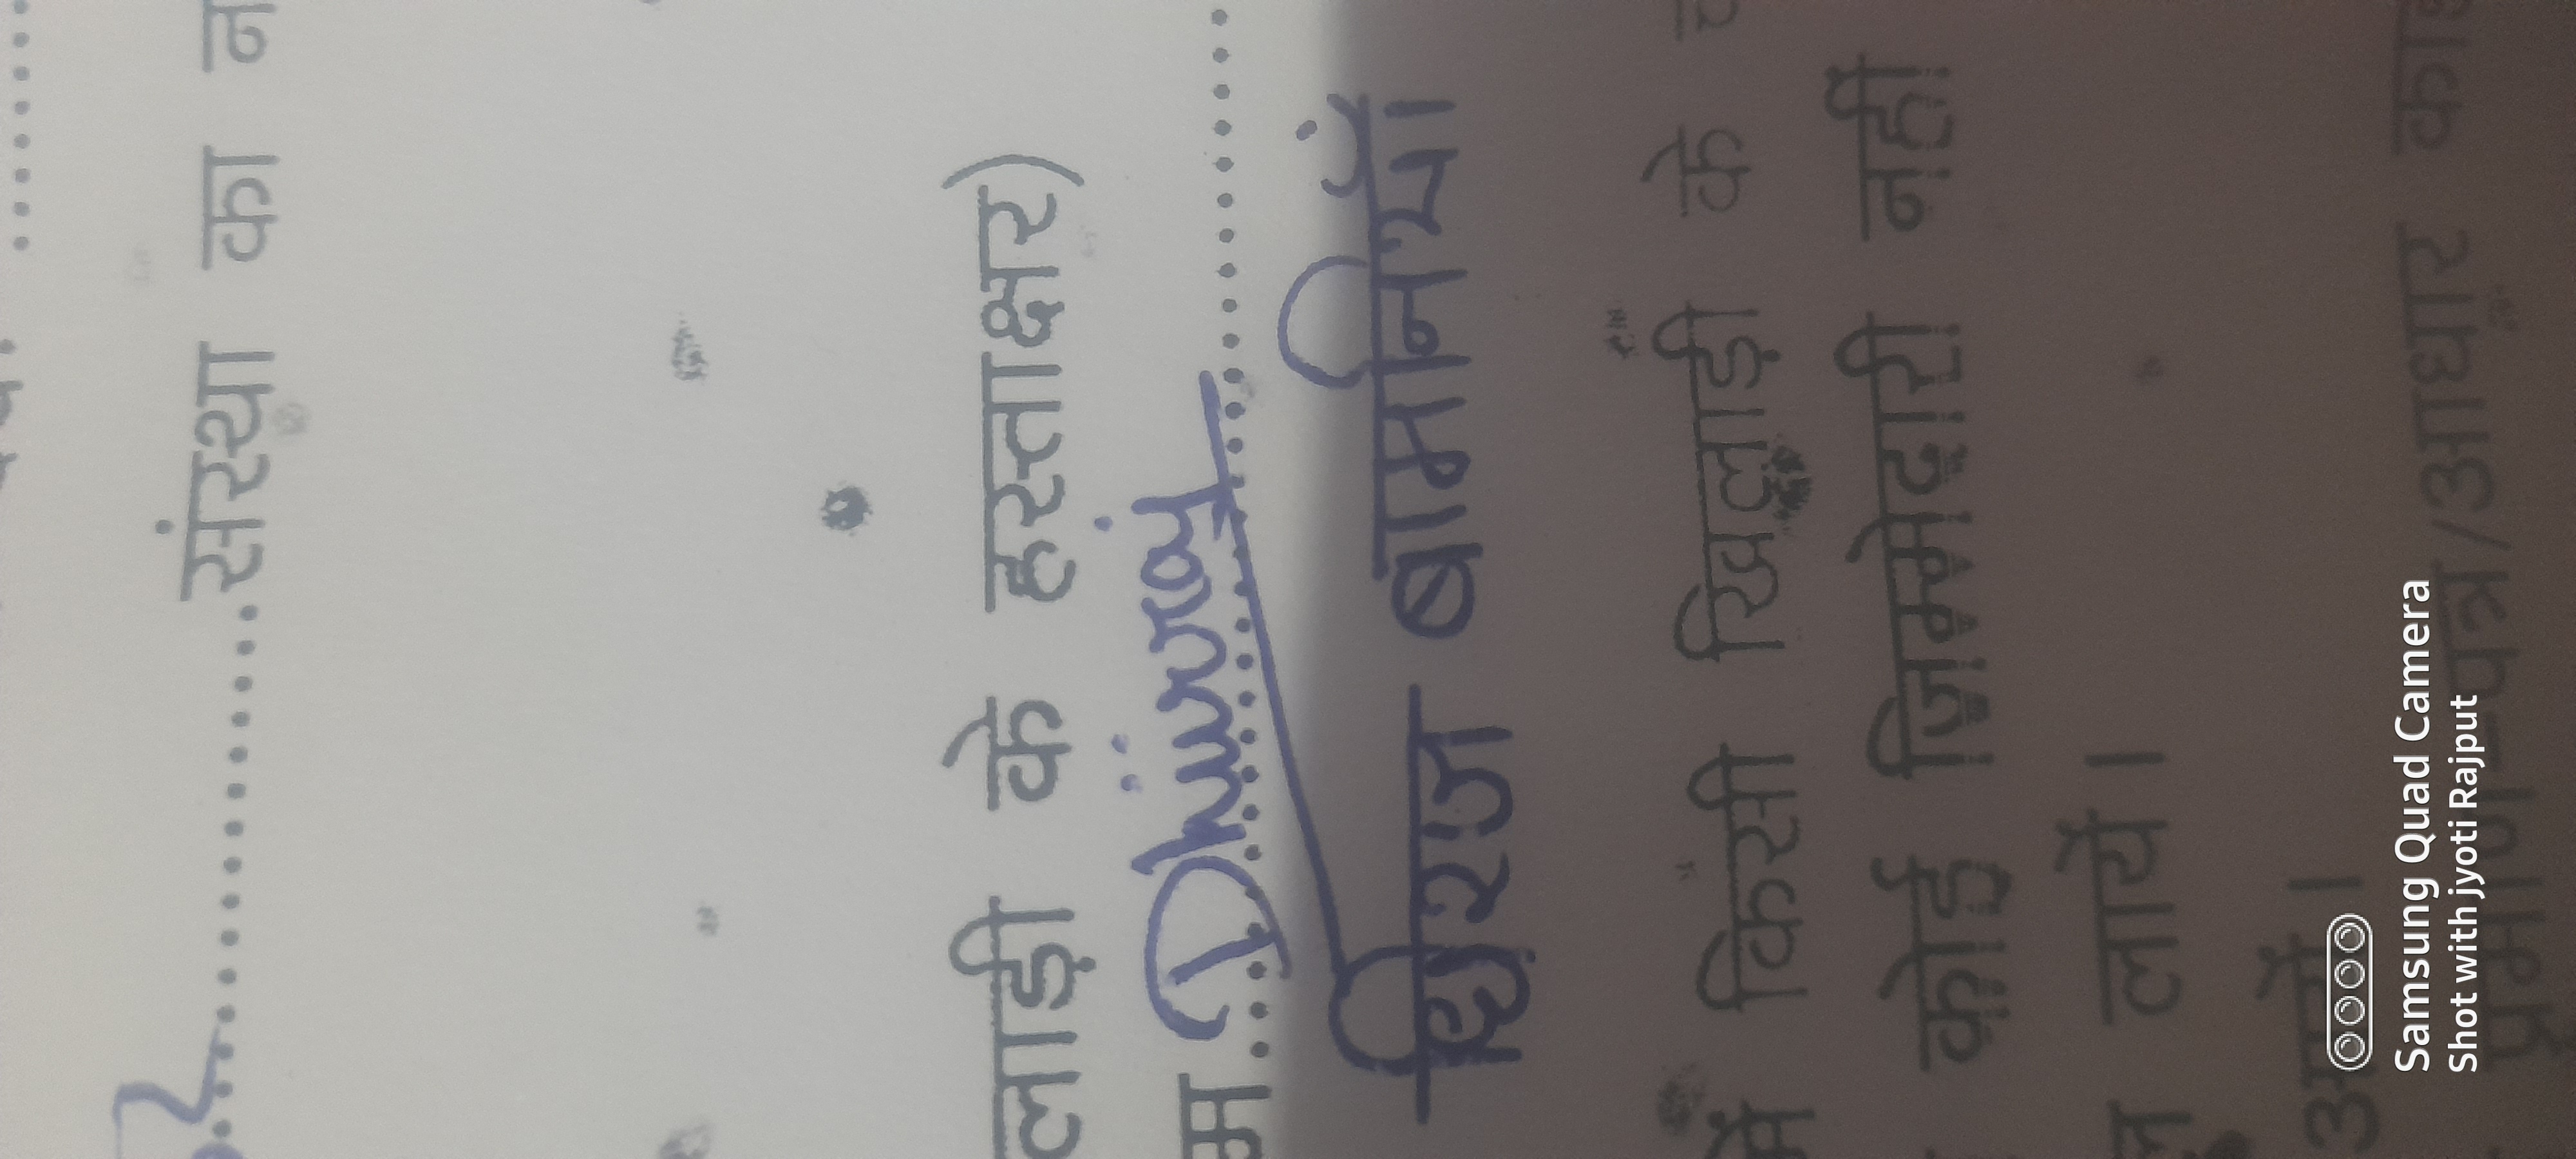 संस्था का
लाड़ी के हस्ताक्षर)
म.. Dhiuraj
धिरज बामनियाँ।
में किसी खिलाड़ी के
कोई जिम्मेदारी नहीं
लायें।
आयें।
प्रमाण-पत्र/आधार
Samsung Quad Camera
Shot with jyoti Rajput